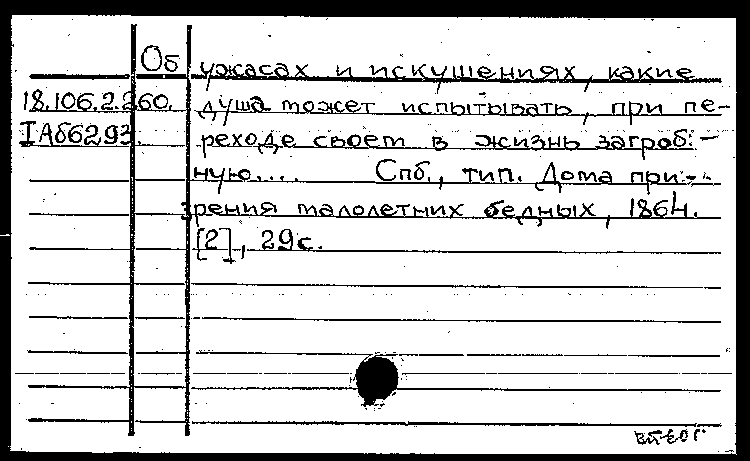 Об ужасах и искушениях, какие
18.106.2.260. душа может испытывать, при пе-
IАб6293. реходе своем в жизнь загроб-
ную.... Спб., тип. Дома при-
зрения малолетних бедных, 1864.
[2], 29с.